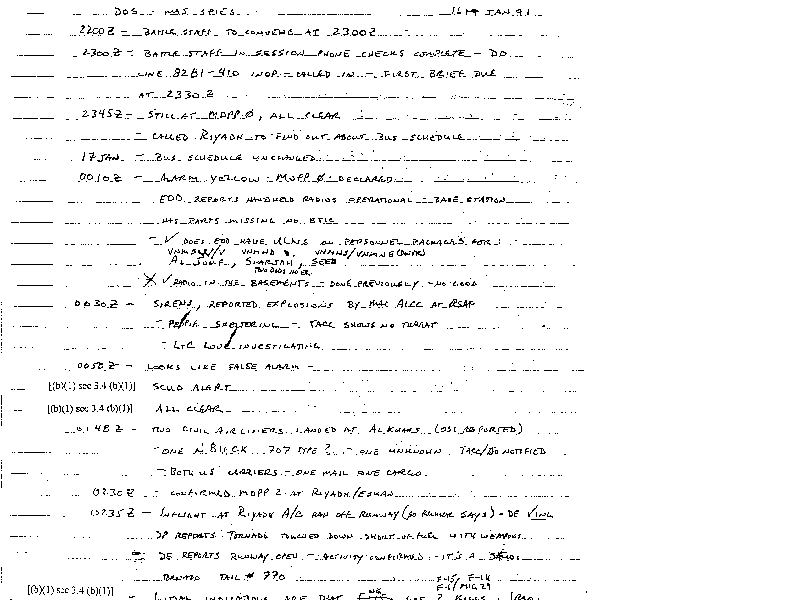 DOS - MAJ SPIES 16/17 JAN 91
2200Z - BATTLE STAFF TO CONVENE AT 2300Z
2300Z - BATTLE STAFF IN SESSION PHONE CHECKS COMPLETE - DO
LINE 8261-410 INOP - CALLED IN - FIRST BRIEF DUE
AT 2330Z
2345Z - STILL AT MOPP 0, ALL CLEAR
- CALLED RIYADH TO FIND OUT ABOUT BUS SCHEDULE
17 JAN - BUS SCHEDULE UNCHANGED
0010Z - ALARM YELLOW - MOPP 0 DECLARED
EOD REPORTS HANDHELD RADIOS OPERATIONAL - BASE STATION
HAS PARTS MISSING NO ETIC
- ✓ DOES EOD HAVE ULNS ON PERSONNEL PACKAGES FOR:
AL JOUF, SHARJAH, SEEB
X ✓ RADIO IN THE BASEMENTS - DONE PREVIOUSLY - NO GOOD
0030Z - SIRENS, REPORTED EXPLOSIONS BY MAC ALCC AT RSAF
- PEOPLE SHELTERING - TACC SHOWS NO THREAT
- LTC LOVE INVESTIGATING
0050Z - LOOKS LIKE FALSE ALARM -
[(b)(1) sec 3.4 (b)(1)] SCUD ALERT
[(b)(1) sec 3.4 (b)(1)] ALL CLEAR
0148Z - TWO CIVIL AIRLINERS LANDED AT AL KHARJ (OSI REPORTED)
- ONE 707 TYPE ? - ONE UNKNOWN TACC/DO NOTIFIED
- BOTH US CARRIERS - ONE MAIL ONE CARGO
0230Z - CONFIRMED MOPP 2 AT RIYADH/ESKAN
0235Z - INFLIGHT AT RIYADH A/C RAN OFF RUNWAY (SO RUMOR SAYS) - DE ✓ING
DP REPORTS TORNADO TOUCHED DOWN SHORT OF FUEL WITH WEAPONS
DE REPORTS RUNWAY OPEN - ACTIVITY CONFIRMED - IT'S A
TORNADO TAIL # 770 F-15/ F-16
F-1/ MIG 29
[(b)(1) sec 3.4 (b)(1)] - INITIAL INDICATIONS ARE THAT 2 KILLS